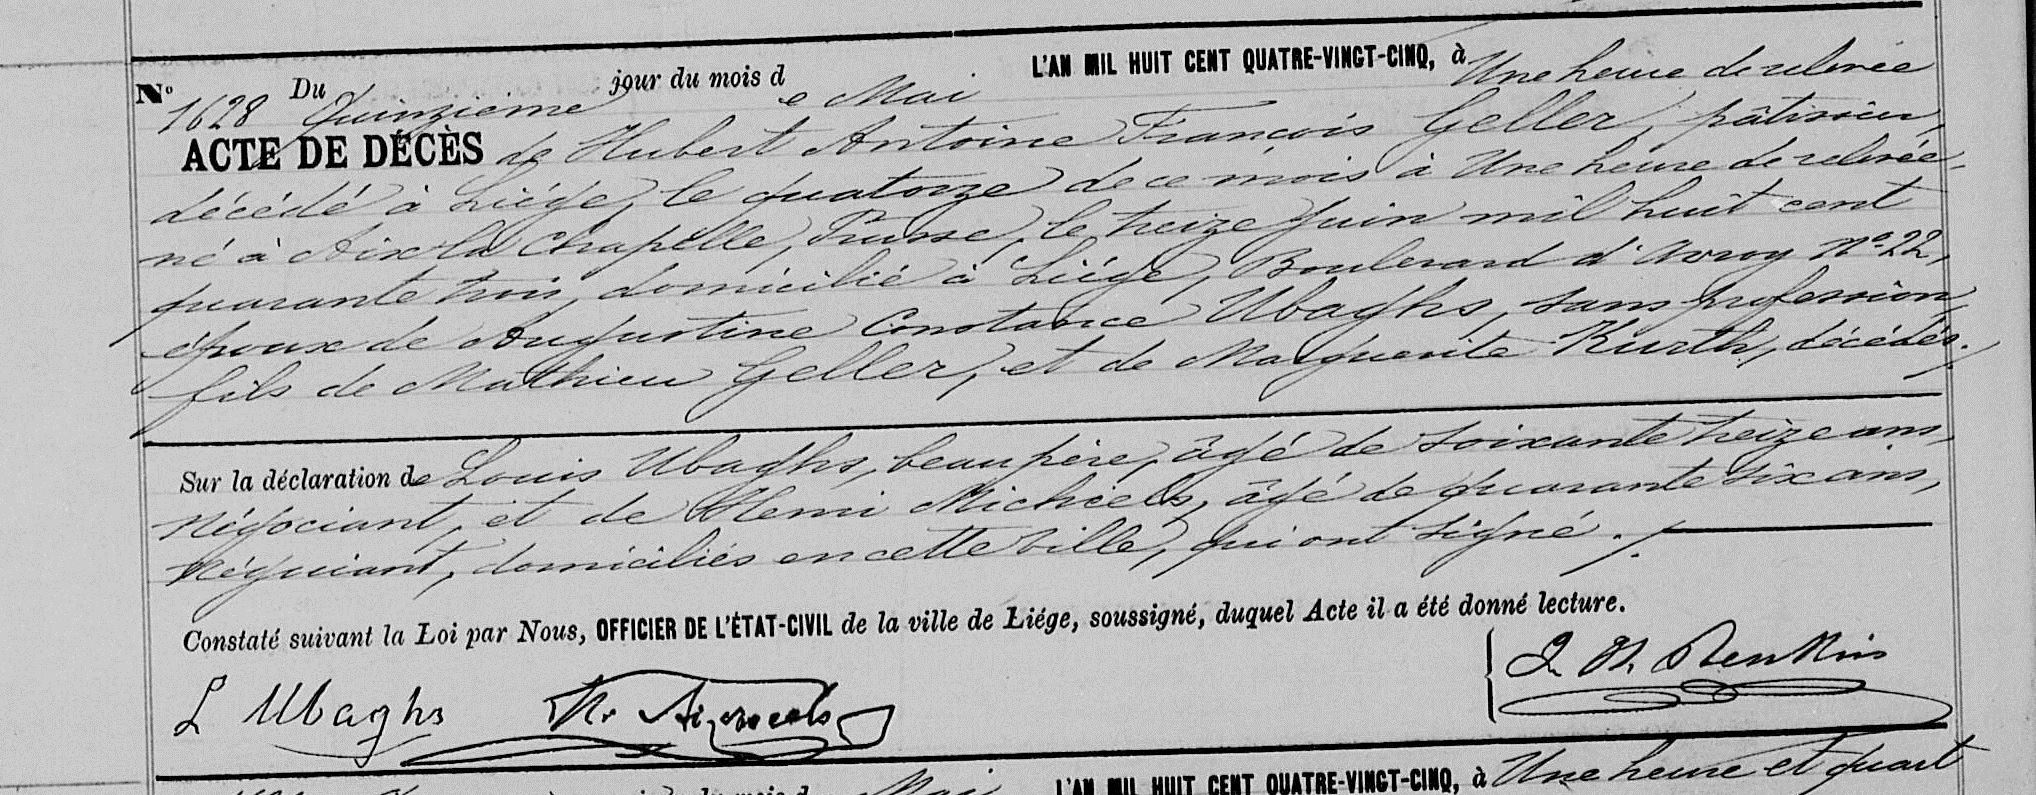 N° 1628 Du Quinzième jour du mois de Mai L'AN MIL HUIT CENT QUATRE-VINGT-CINQ, à Une heure de relevée
ACTE DE DÉCÈS de Hubert Antoine François Geller, pâtissier,
décédé à Liége, le quatorze de ce mois à Une heure de relevée,
né à Aix la Chapelle, Prusse, le treize Juin mil huit cent
quarante trois, domicilié à Liége, Boulevard d'Avroy N° 22,
époux de Augustine Constance Ubaghs, sans profession,
fils de Mathieu Geller, et de Marguerite Kurth, décédés.
Sur la déclaration de Louis Ubaghs, beau père, âgé de soixante treize ans,
négociant, et de Henri Michiels, âgé de quarante six ans,
négociant, domiciliés en cette ville, qui ont signé.
Constaté suivant la Loi par Nous, OFFICIER DE L'ÉTAT-CIVIL de la ville de Liége, soussigné, duquel Acte il a été donné lecture.
L Ubaghs
Renkin
Mai L'AN MIL HUIT CENT QUATRE-VINGT-CINQ, à Une heure et quart